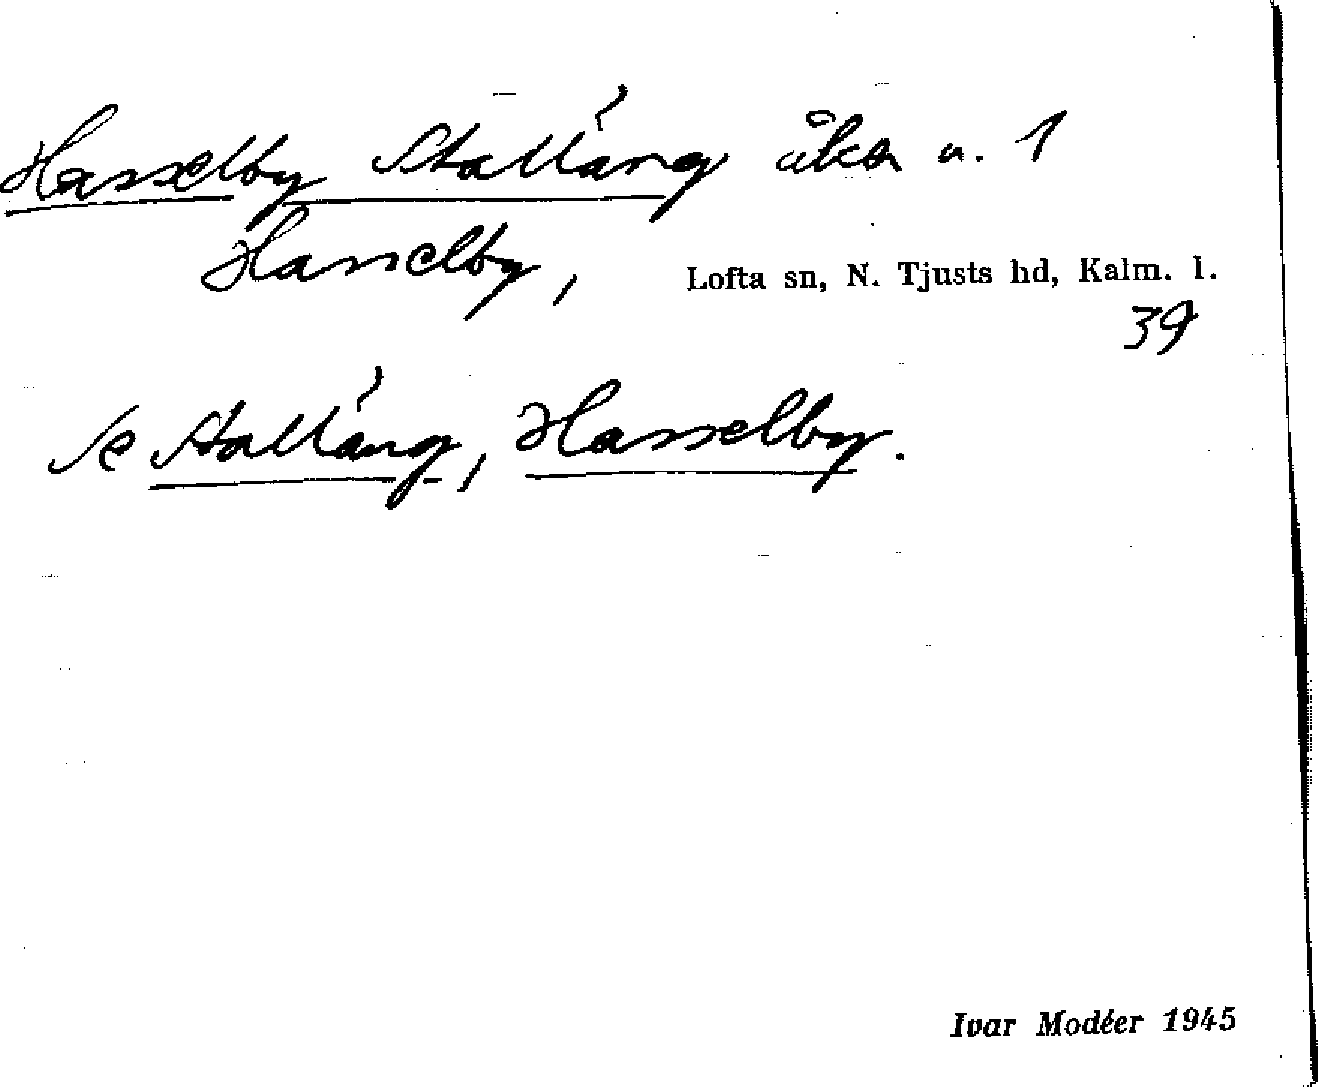 Hasselby Stalläng åker u. 1
Hasselby, Lofta sn, N. Tjusts hd, Kalm. l.
39
Se Stalläng, Hasselby.
Ivar Modéer 1945